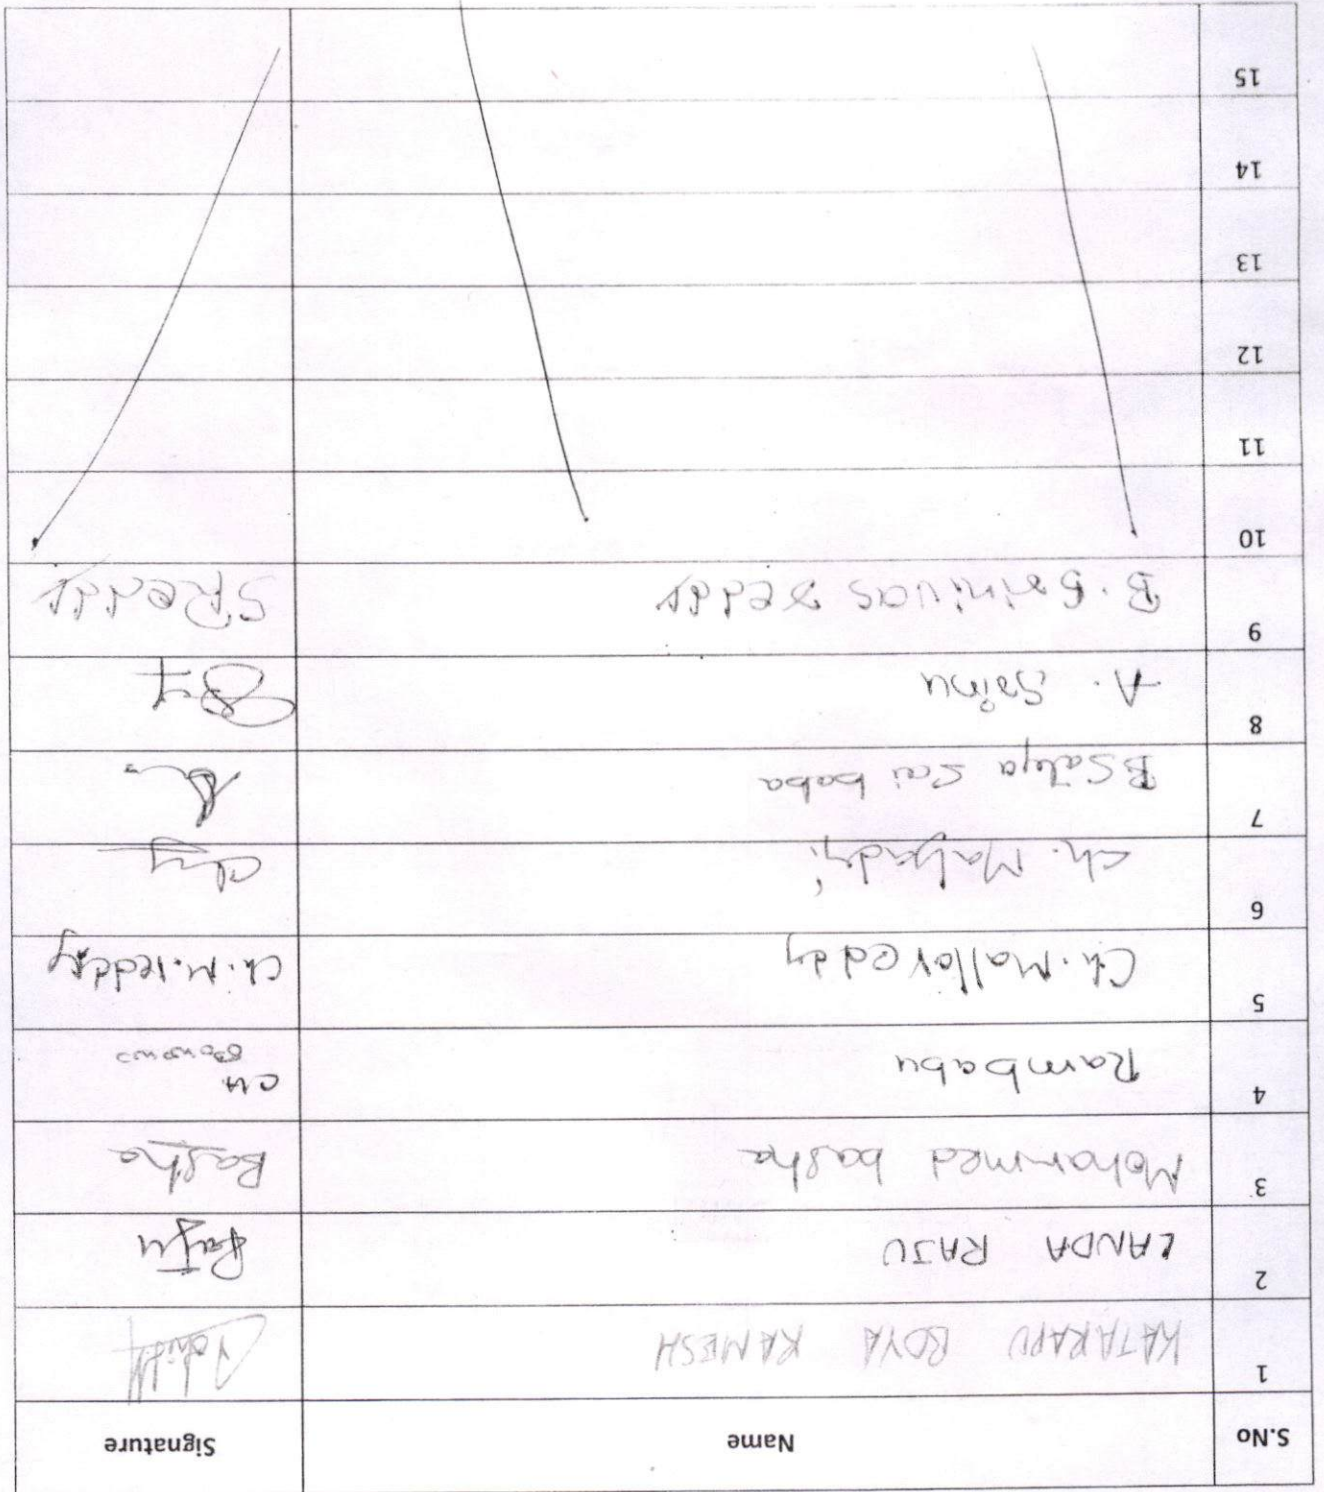 S.No Name Signature
1 KATARAPU BOYA RAMESH
2 LANDA RAJU Raju
3 Mohammed basha Basha
4 Rambabu CH
5 Ch. Mallareddy Ch. M. reddy
6 Ch. Malyadri
7 B Satya Sai baba
8 A. Srinu
9 B. Srinivas reddy S Reddy
10
11
12
13
14
15